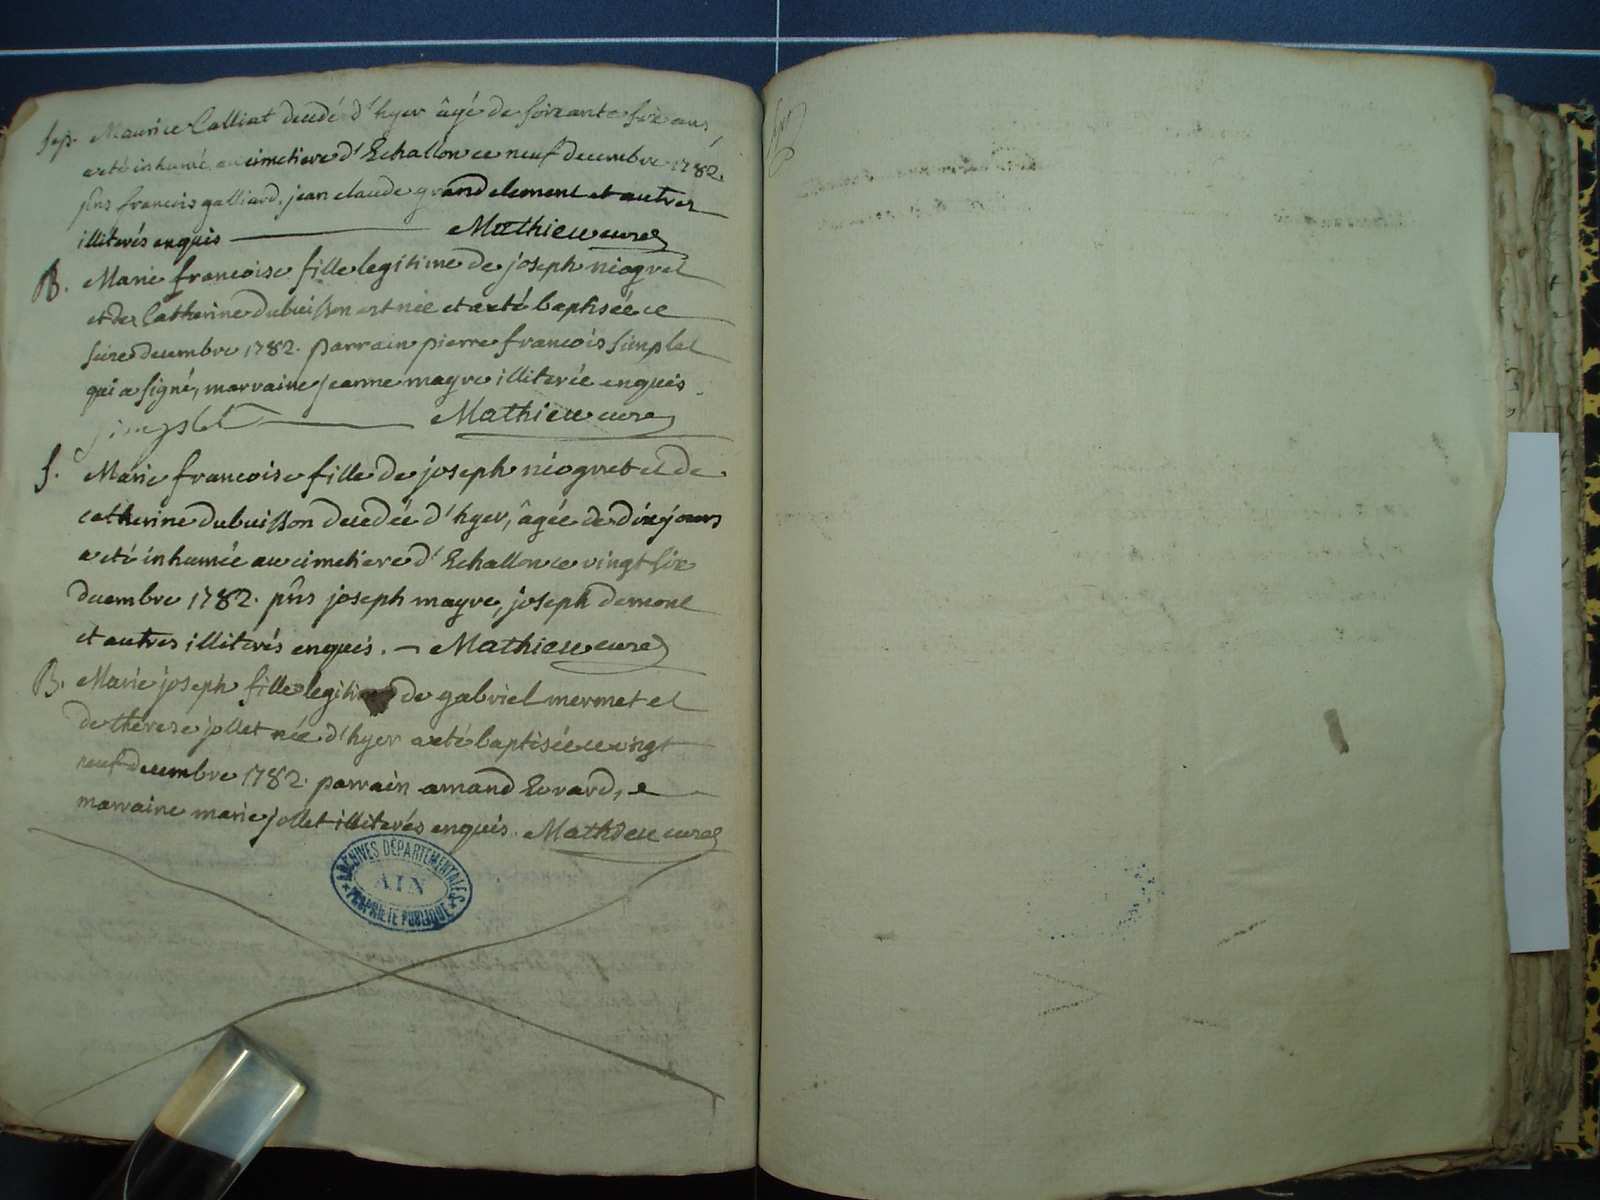 Sep. Maurice Calliat decedé d'hyer âgé de soixante six ans
a eté inhumé au cimetiere d'Echallon ce neuf decembre 1782.
pñs francois galliard, jean claude grandclement et autres
illiterés enquis Mathieu curé
B. Marie francoise fille legitime de joseph niogret
et de Catherine dubuisson est née et a eté baptisée ce
seize decembre 1782. parrain pierre francois simplet
qui a signé, marraine jeanne mayre illiterée enquis.
simplet Mathieu curé
S. Marie francoise fille de joseph niogret et de
catherine dubuisson decedée d'hyer, âgée de dix jours
a eté inhumée au cimetiere d'Echallon ce vingt six
decembre 1782. pñs joseph mayre, joseph demont
et autres illiterés enquis. Mathieu curé
B. Marie joseph fille legitime de gabriel mermet et
de therese jollet née d'hyer a eté baptisée ce vingt
neuf decembre 1782. parrain amand Evrard, e
marraine marie jollet illiterés enquis. Mathieu curé
ARCHIVES DÉPARTEMENTALES
AIN
PROPRIÉTÉ PUBLIQUE